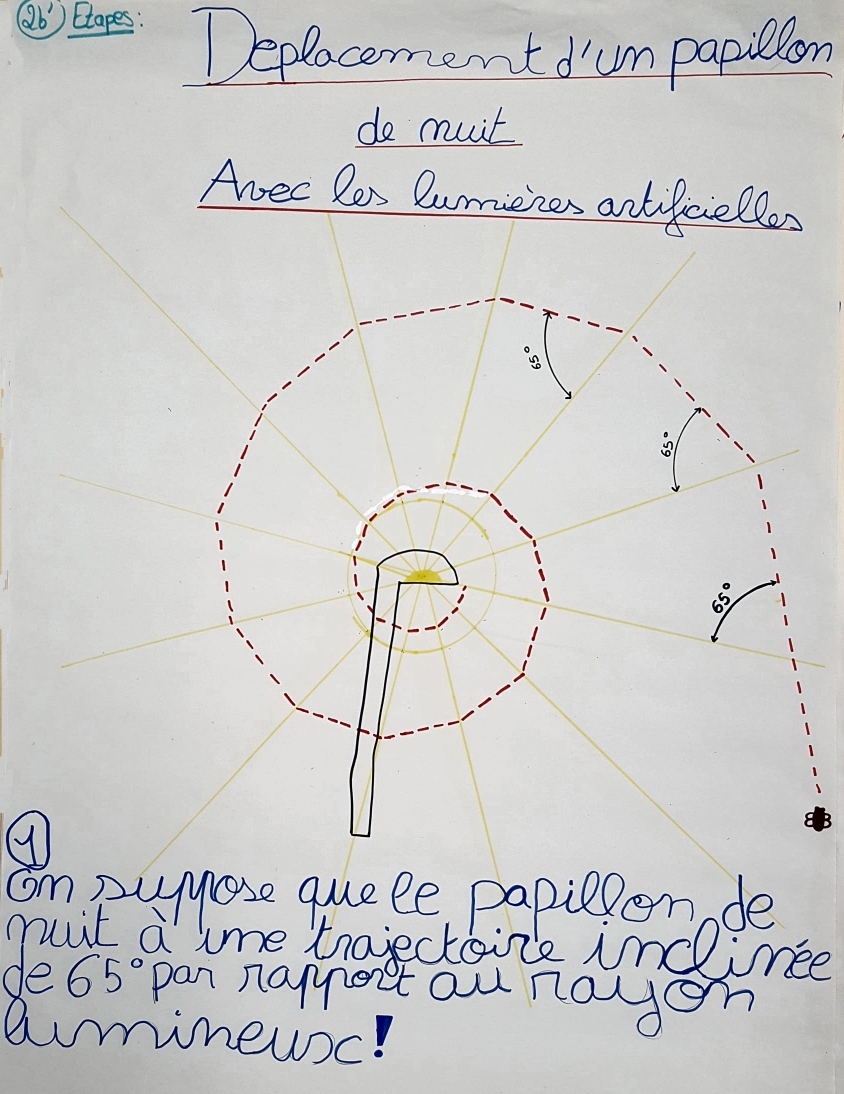 2b') Etapes:
Deplacement d'un papillon
de nuit
Avec les lumières artificielles
65°
65°
65°
1
On suppose que le papillon de
nuit à une trajectoire inclinée
de 65° par rapport au rayon
lumineusc!